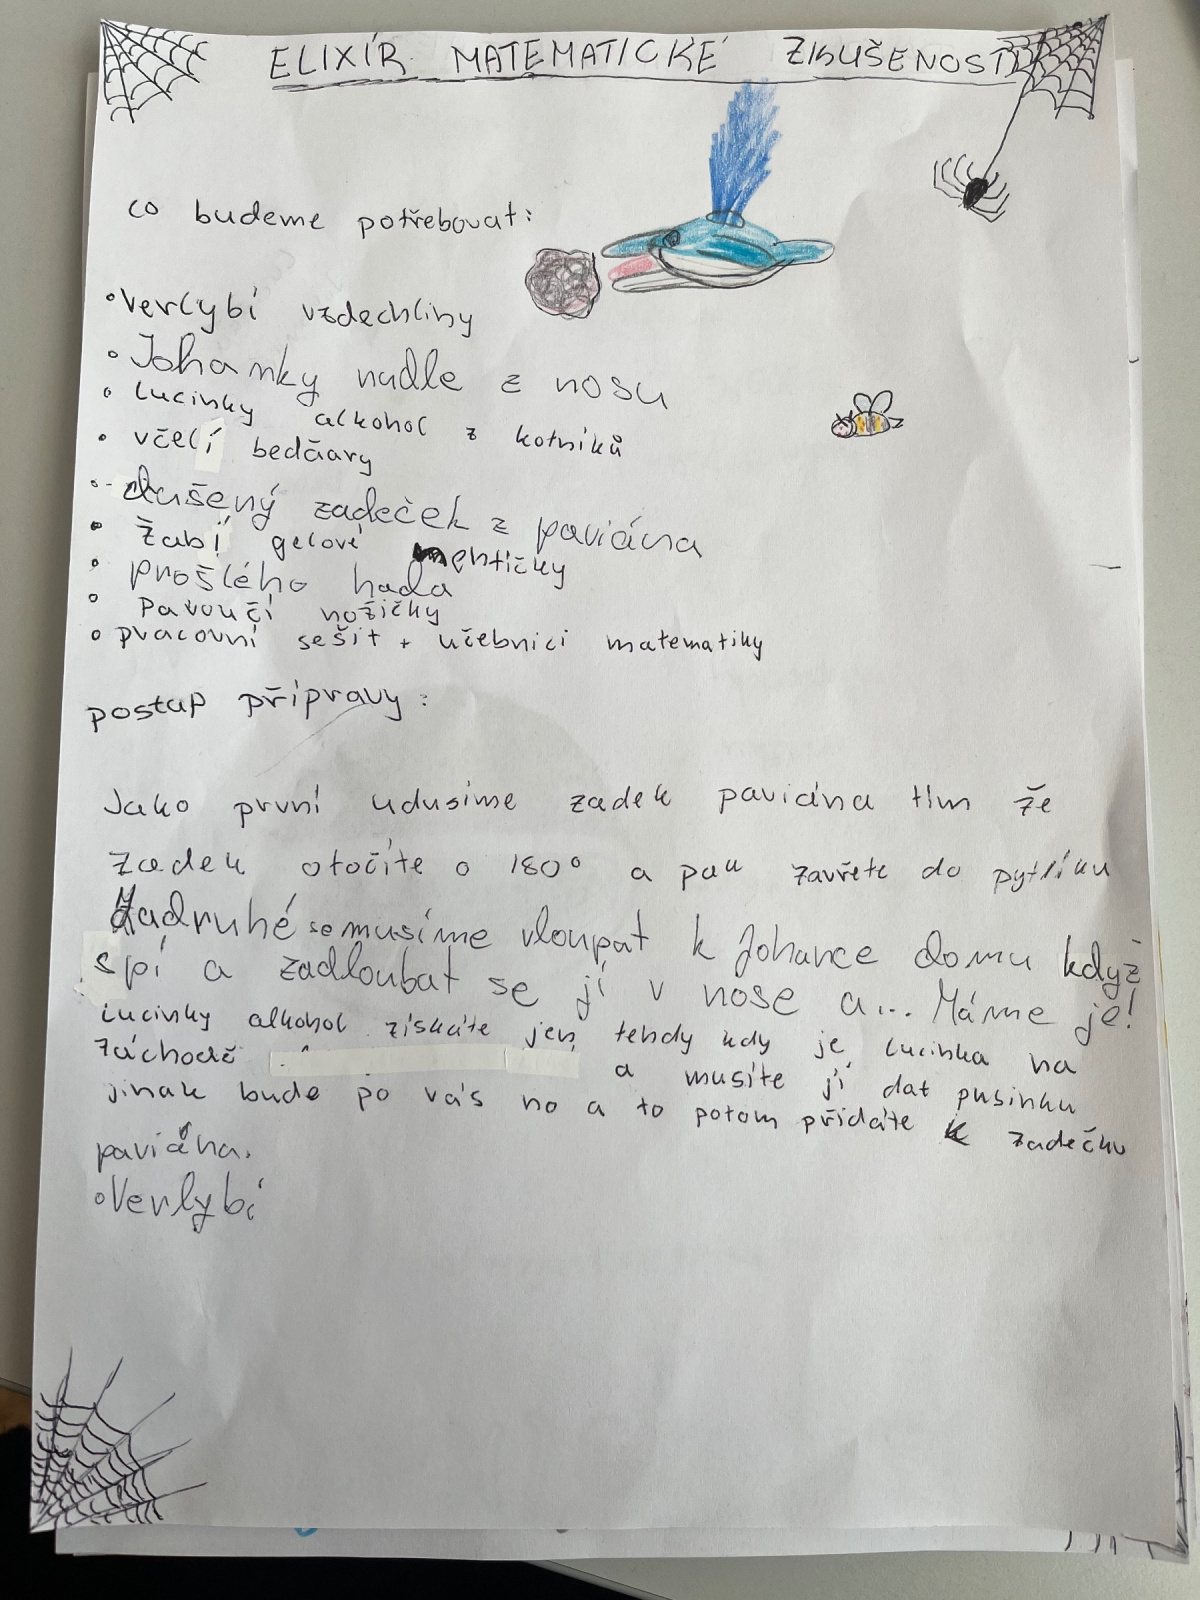 ELIXÍR MATEMATICKÉ ZKUŠENOSTI
co budeme potřebovat:
• Verlybí vzdechliny
• Johanky nudle z nosu
• Lucinky alkohol z kotníků
• včelí bedčary
• dušený zadeček z paviána
• Žabí gelové mentičky
• prošlého hada
• Pavoučí nožičky
• pracovní sešit + učebnici matematiky
postup přípravy:
Jako první udusíme zadek paviána tím že
zadek otočíte o 180° a pak zavřete do pytlíku
Zadruhé se musíme vloupat k Johance domu když
spí a zadloubat se jí v nose a... Máme je!
Lucinky alkohol získáte jen tehdy kdy je Lucinka na
záchodě a musíte jí dat pusinku
jinak bude po vás no a to potom přidáte k zadečku
paviána.
• Verlybí